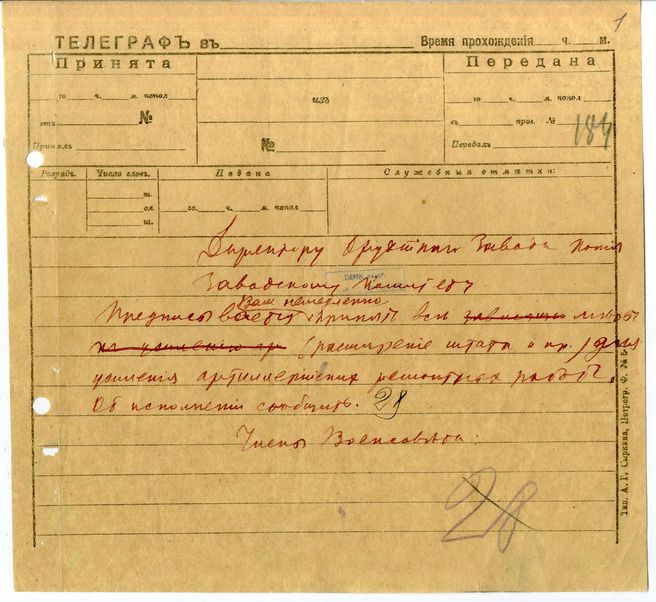 1
ТЕЛЕГРАФЪ въ Время прохожденія ч. м.
Принята Передана
го ч. м. попол изъ го ч. м. попол
отъ № въ пров. № 184
Принялъ № Передалъ
Разрядъ. Число словъ. Подана Служебныя отмѣтки:
т.
сл. го ч. м. попол
ш.
Директору Оружейнаго Завода Копія
Заводскому Комитету
Вамъ немедленно
Предписывается принять всѣ зависящія мѣры
къ усиленію ар (расширеніе штата и пр.) для
усиленія артиллерійских ремонтных работъ.
Об исполненіи сообщить. 28
Члены Военсовѣта:
28
Тип. А. Г. Сыркина, Петрогр. Ф. № 5